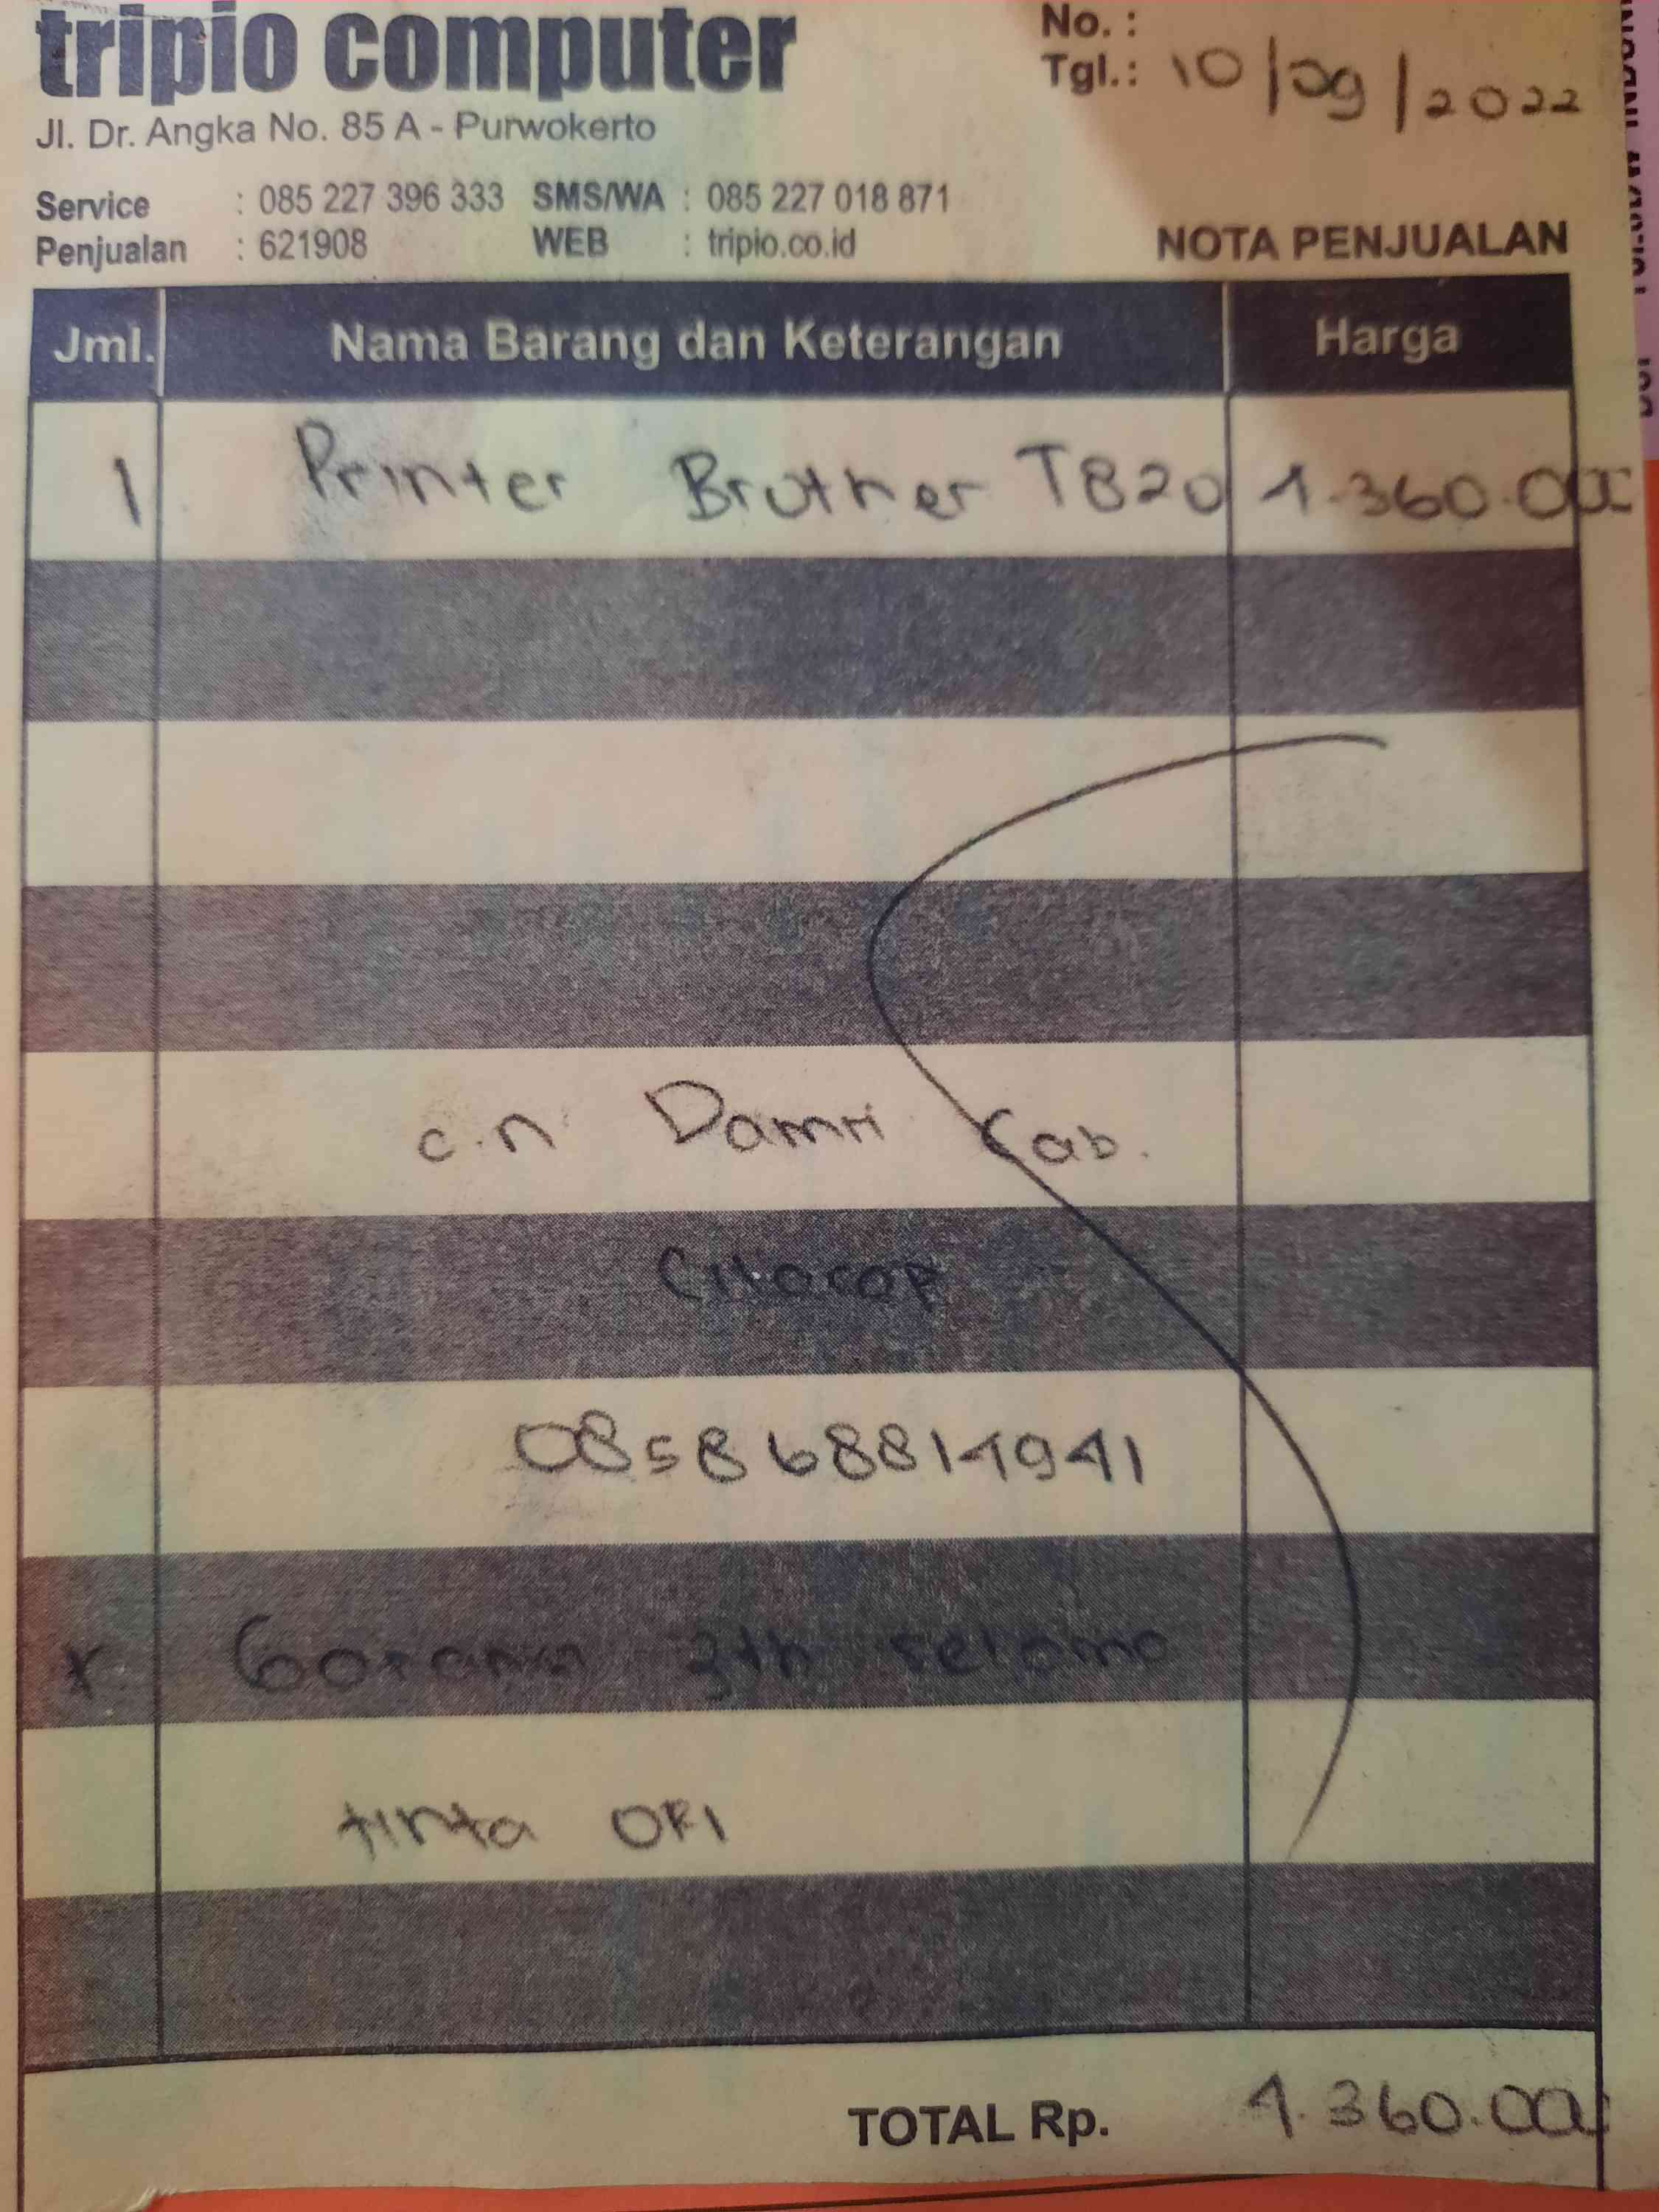 tripio computer
No. :
Tgl.: 10/09/2022
Jl. Dr. Angka No. 85 A - Purwokerto
Service : 085 227 396 333 SMS/WA : 085 227 018 871
Penjualan : 621908 WEB : tripio.co.id
NOTA PENJUALAN
Jml. Nama Barang dan Keterangan Harga
1 Printer Brother T820 4.360.000
c.n Damri Cab.
Cilacap
085868814941
x Garansi 3th selama
tinta ORI
TOTAL Rp. 4.360.000